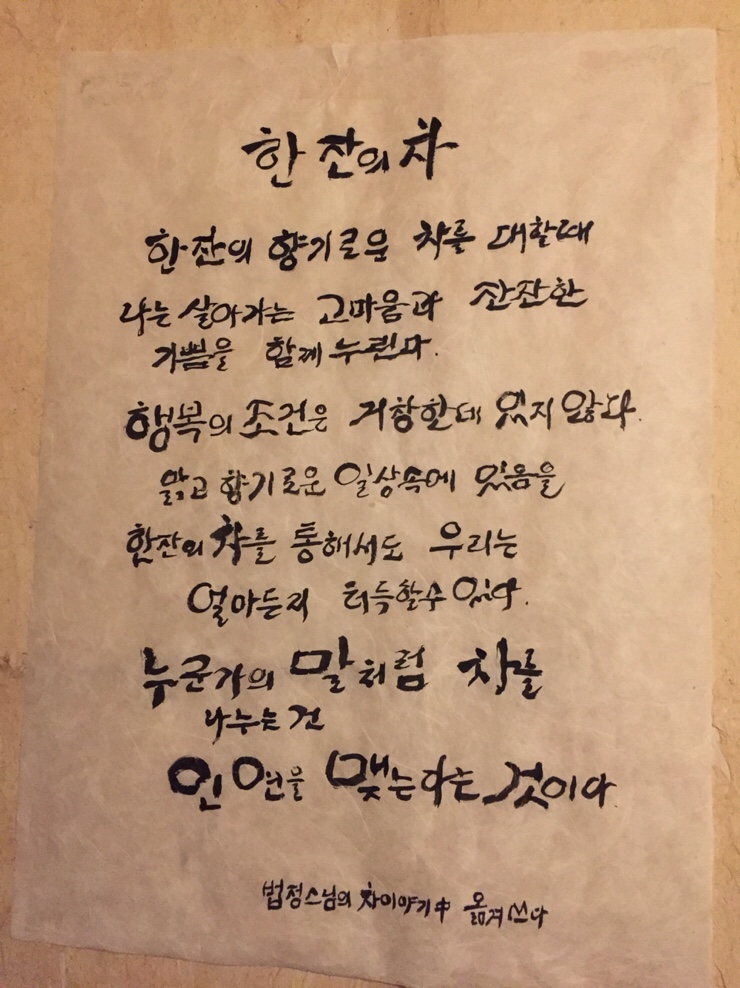 한 잔의 차
한잔의 향기로운 차를 대할때
나는 살아가는 고마움과 잔잔한
기쁨을 함께 누린다.
행복의 조건은 거창한데 있지 않다.
맑고 향기로운 일상속에 있음을
한잔의 차를 통해서도 우리는
얼마든지 터득할수 있다.
누군가의 말처럼 차를
나누는 건
인연을 맺는다는 것이다
법정스님의 차이야기中 옮겨쓰다